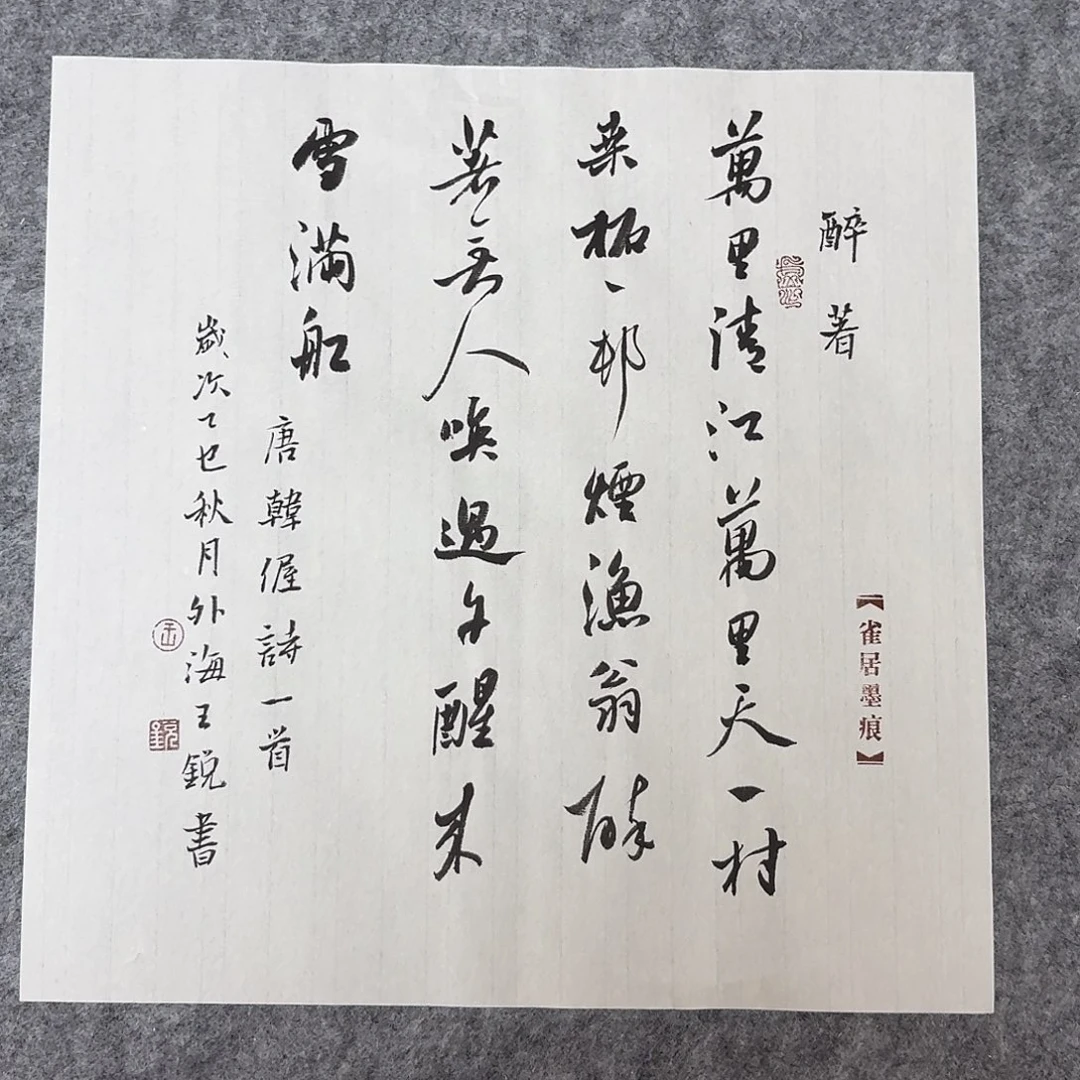 醉著
【雀居墨痕】
萬里清江萬里天一村
桒柘一邨煙漁翁醉
著无人喚過午醒来
雪滿舩
唐韓偓詩一首
歲次乙巳秋月外海王銳書
王
銳